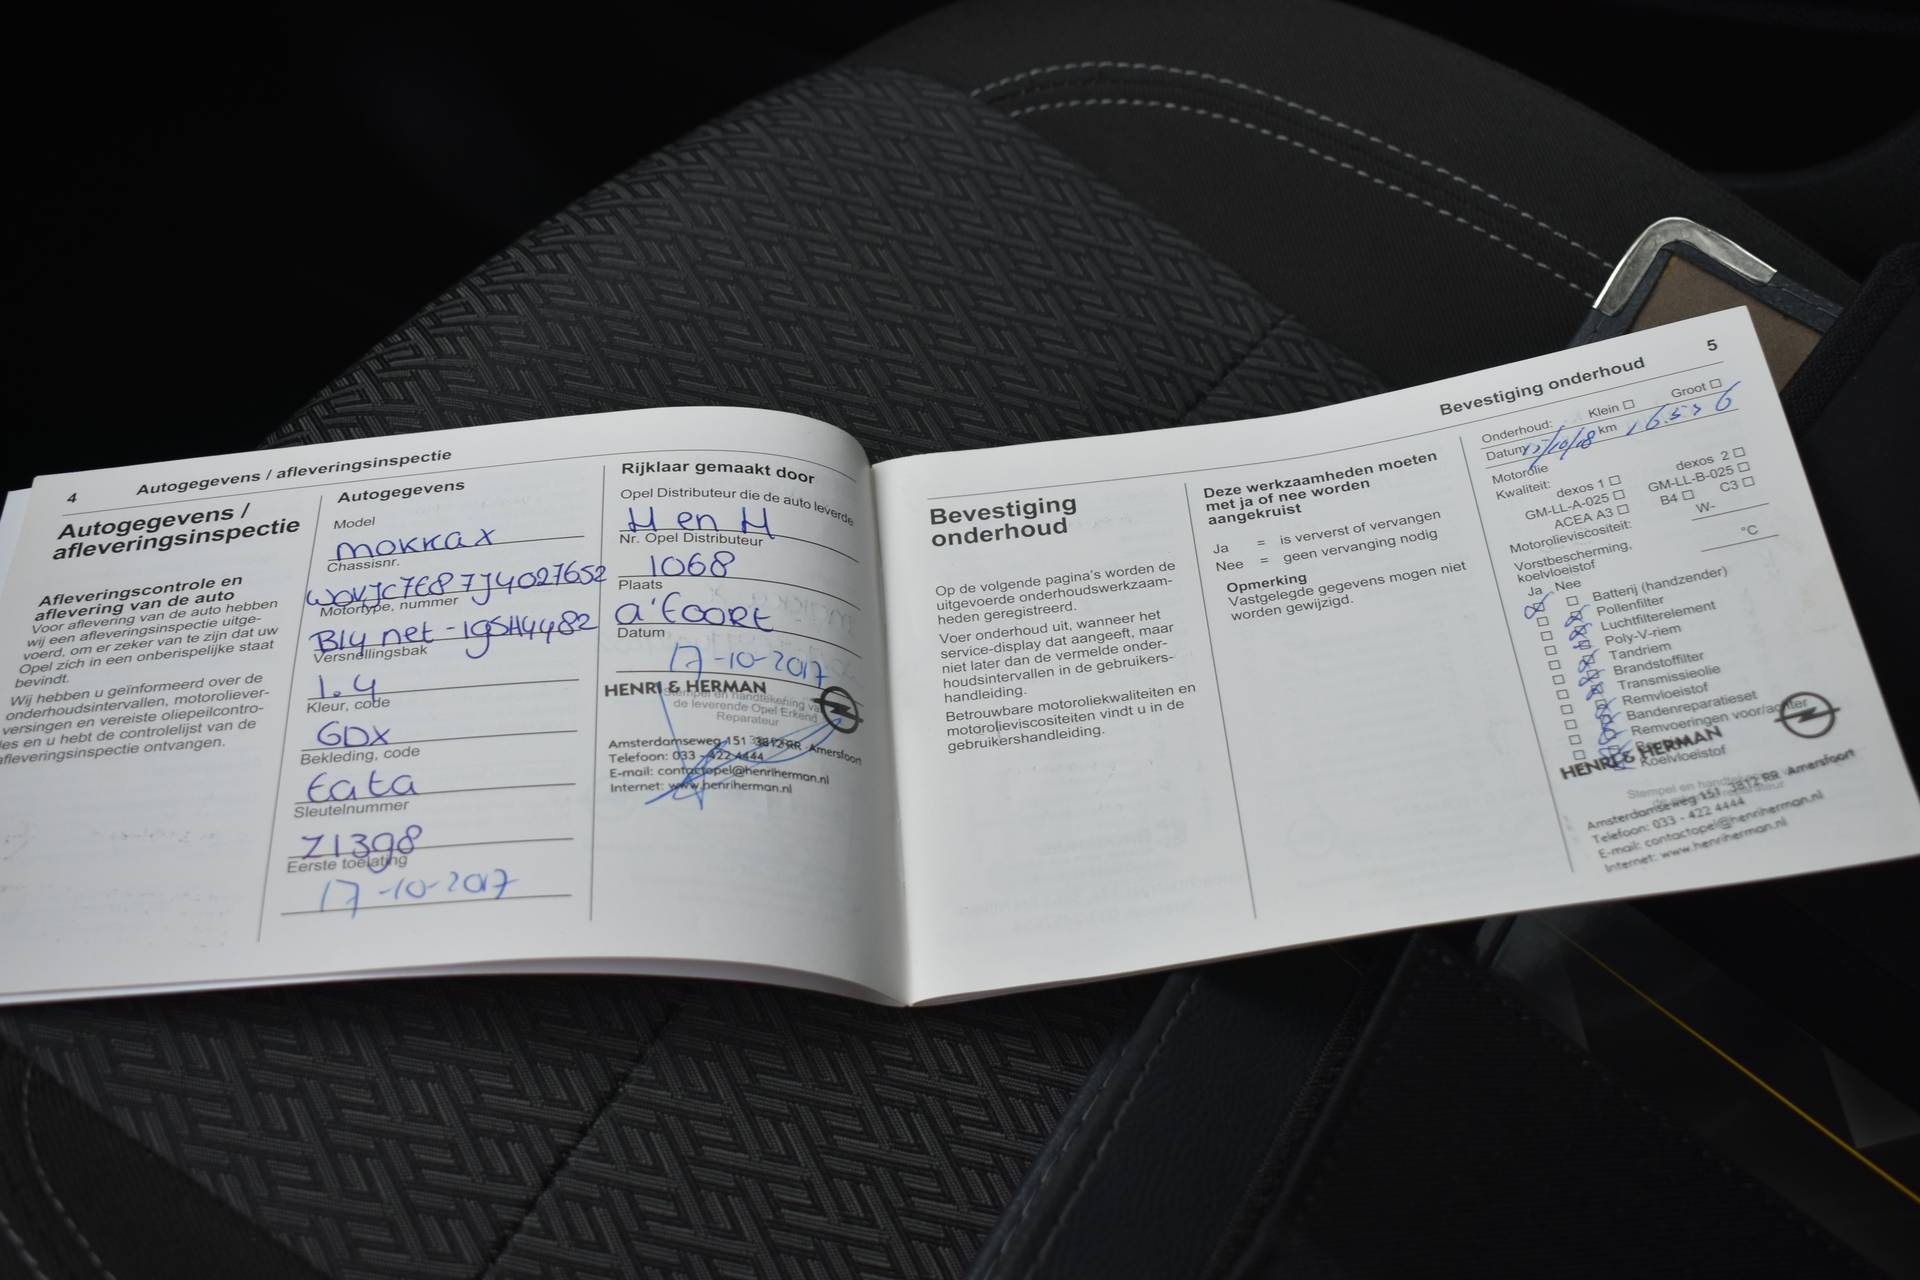 4
Autogegevens / afleveringsinspectie
Autogegevens /
afleveringsinspectie
Afleveringscontrole en
aflevering van de auto
Voor aflevering van de auto hebben
wij een afleveringsinspectie uitge-
voerd, om er zeker van te zijn dat uw
Opel zich in een onberispelijke staat
bevindt.
Wij hebben u geïnformeerd over de
onderhoudsintervallen, motoroliever-
versingen en vereiste oliepeilcontro-
les en u hebt de controlelijst van de
afleveringsinspectie ontvangen.
Autogegevens
Model
MOKKA X
Chassisnr.
WOVJC7E87J4027652
Motortype, nummer
B14 net - 19SH4482
Versnellingsbak
1.4
Kleur, code
GDX
Bekleding, code
tata
Sleutelnummer
Z1398
Eerste toelating
17-10-2017
Rijklaar gemaakt door
Opel Distributeur die de auto leverde
H en H
Nr. Opel Distributeur
1068
Plaats
a'foort
Datum
17-10-2017
HENRI & HERMAN
Stempel en handtekening va
de leverende Opel Erkend
Reparateur
Amsterdamseweg 151 3812 RR Amersfoort
Telefoon: 033 - 422 4444
E-mail: contactopel@henriherman.nl
Internet: www.henriherman.nl
Bevestiging onderhoud
5
Bevestiging
onderhoud
Op de volgende pagina's worden de
uitgevoerde onderhoudswerkzaam-
heden geregistreerd.
Voer onderhoud uit, wanneer het
service-display dat aangeeft, maar
niet later dan de vermelde onder-
houdsintervallen in de gebruikers-
handleiding.
Betrouwbare motoroliekwaliteiten en
motorolieviscositeiten vindt u in de
gebruikershandleiding.
Deze werkzaamheden moeten
met ja of nee worden
aangekruist
Ja = is ververst of vervangen
Nee = geen vervanging nodig
Opmerking
Vastgelegde gegevens mogen niet
worden gewijzigd.
Onderhoud: Klein Groot
Datum /10/18 km
Motorolie
Kwaliteit:
dexos 1 dexos 2
GM-LL-A-025 GM-LL-B-025
ACEA A3 B4 C3
Motorolieviscositeit: W-
Vorstbescherming,
koelvloeistof °C
Ja Nee
Batterij (handzender)
Pollenfilter
Luchtfilterelement
Poly-V-riem
Tandriem
Brandstoffilter
Transmissieolie
Remvloeistof
Bandenreparatieset
Remvoeringen voor/achter
Koelvloeistof
HENRI & HERMAN
Stempel en
Amsterdamseweg 151 3812 RR Amersfoort
Telefoon: 033 - 422 4444
E-mail: contactopel@henriherman.nl
Internet: www.henriherman.nl